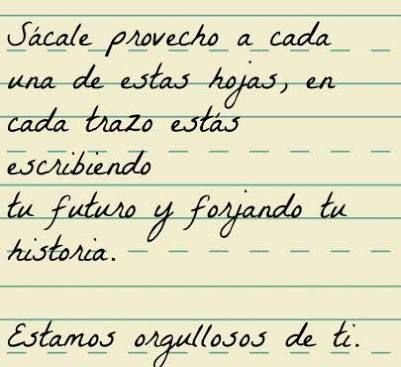 Sácale provecho a cada
una de estas hojas, en
cada trazo estás
escribiendo
tu futuro y forjando tu
historia.
Estamos orgullosos de ti.